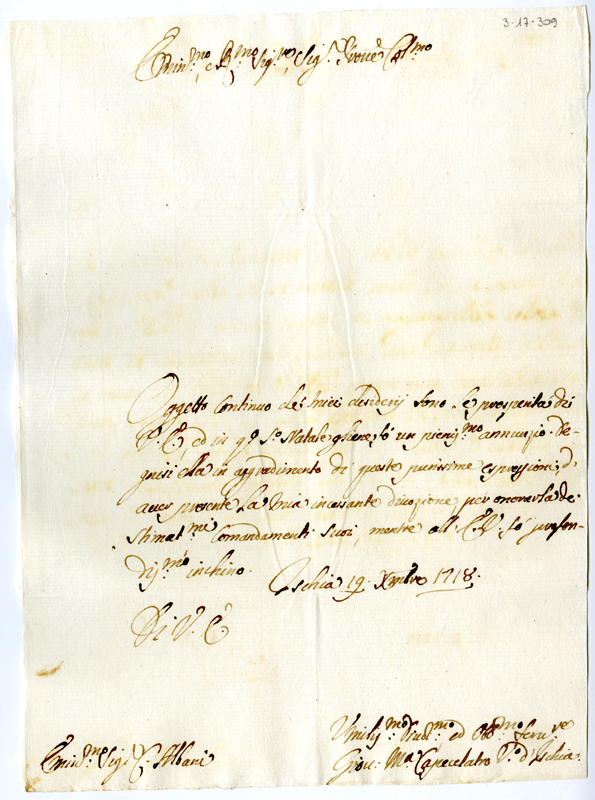 3-17-309
Emin.mo, e R.mo Sig.re, Sig.r P'rone Col.mo
Oggetto continuo de' miei desiderij sono le prosperità di
V. E., ed in q.o S.o Natale gliene fò un pieniss.mo annunzio. De-
gnisi ella in aggradimento di queste purissime espressioni, d'
aver presente la mia incessante divozione per onorerla de'
stimat.mi Comandamenti suoi, mentre all' E. V. fò profon-
diss.mo inchino. Ischia 19. Xmbre 1718.
Di V. E.
Umiliss.mo Divot.mo ed Obb.mo Serv.re
Emin.mo Sig.r C. Albani
Giov. M.a Capecelatro V.o d'Ischia